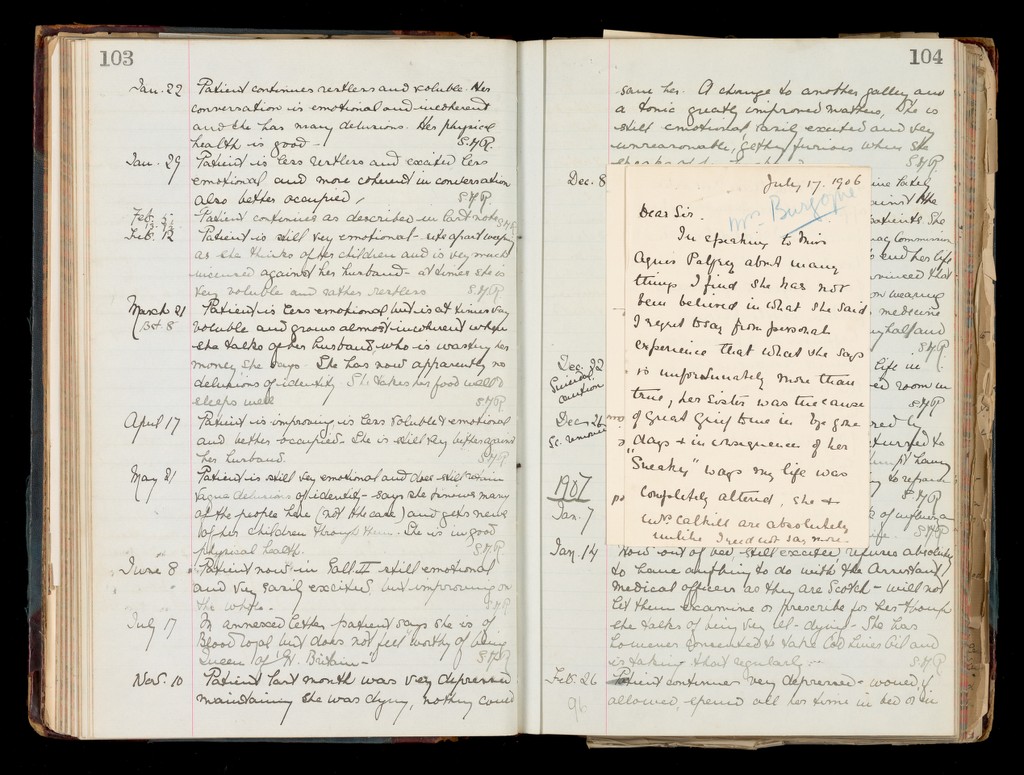 103
Jan. 22 Patient continues restless and voluble. Her
conversation is emotional and incoherent
and she has many delusions. Her physical
health is good -
Jan. 29 Patient is less restless and excited, less
emotional and more coherent in conversation
also better occupied,
Feb. 5 Patient continues as described in last note
Feb. 12 Patient is still very emotional - sits apart weeping
as she thinks of her children and is very much
incensed against her husband - at times she is
very voluble and rather restless
March 21 Patient is less emotional but is at times very
voluble and grows almost incoherent when
she talks of her husband, who is wasting her
money she says. She has now apparently no
delusions of identity. She takes her food well &
sleeps well
April 17 Patient is improving is less voluble & emotional
and better occupied. She is still very bitter against
her husband.
May 31 Patient is still very emotional and does still retain
vague delusions of identity - says she knows many
of the people here (not the case) and gets news
of her children through them. She is in good
physical health.
June 8 Patient now in Gall II still emotional
and very easily excited, but improving on
the whole.
July 17 In annexed letter patient says she is of
Blood royal but does not feel worthy of being
"Queen of Gt. Britain"
Nov. 10 Patient last month was very depressed
maintaining she was dying, nothing could
104
save her. A change to another gallery and
a tonic greatly improved matters, She is
still emotional easily excited and very
unreasonable, getting furious when she
Dec. 8
July 17. 1906
Mrs Burgoyne
Dear Sir.
In speaking to Miss
Agnes Palfrey about many
things I find she has not
been believed in what she said
I regret to say from personal
experience that what she says
is unfortunately more than
true, her sister was the cause
of Great Grief to me in bye gone
days & in consequence of her
"Sneaky" ways my life was
completely altered, she &
Mr. Calhill are absolutely
unlike I need not say more.
ine lately
against the
patients She
Commission
end her life
convinced that
on wearing
medicine
half and
Dec. 22
Suicidal
caution
life in
room in
Dec. 26
red by
turned to
having
to refrain
1907
Jan. 7
of influenza
Jan. 14 Now out of bed, still excited refuses absolutely
to have anything to do with the Assistant
Medical officers as they are Scotch - will not
let them examine or prescribe for her though
she talks of being very ill - dying - She has
however consented to take Cod Liver Oil and
is taking that regularly -
Feb. 26 Patient continues very depressed - would if
allowed, spend all her time in bed or in
96